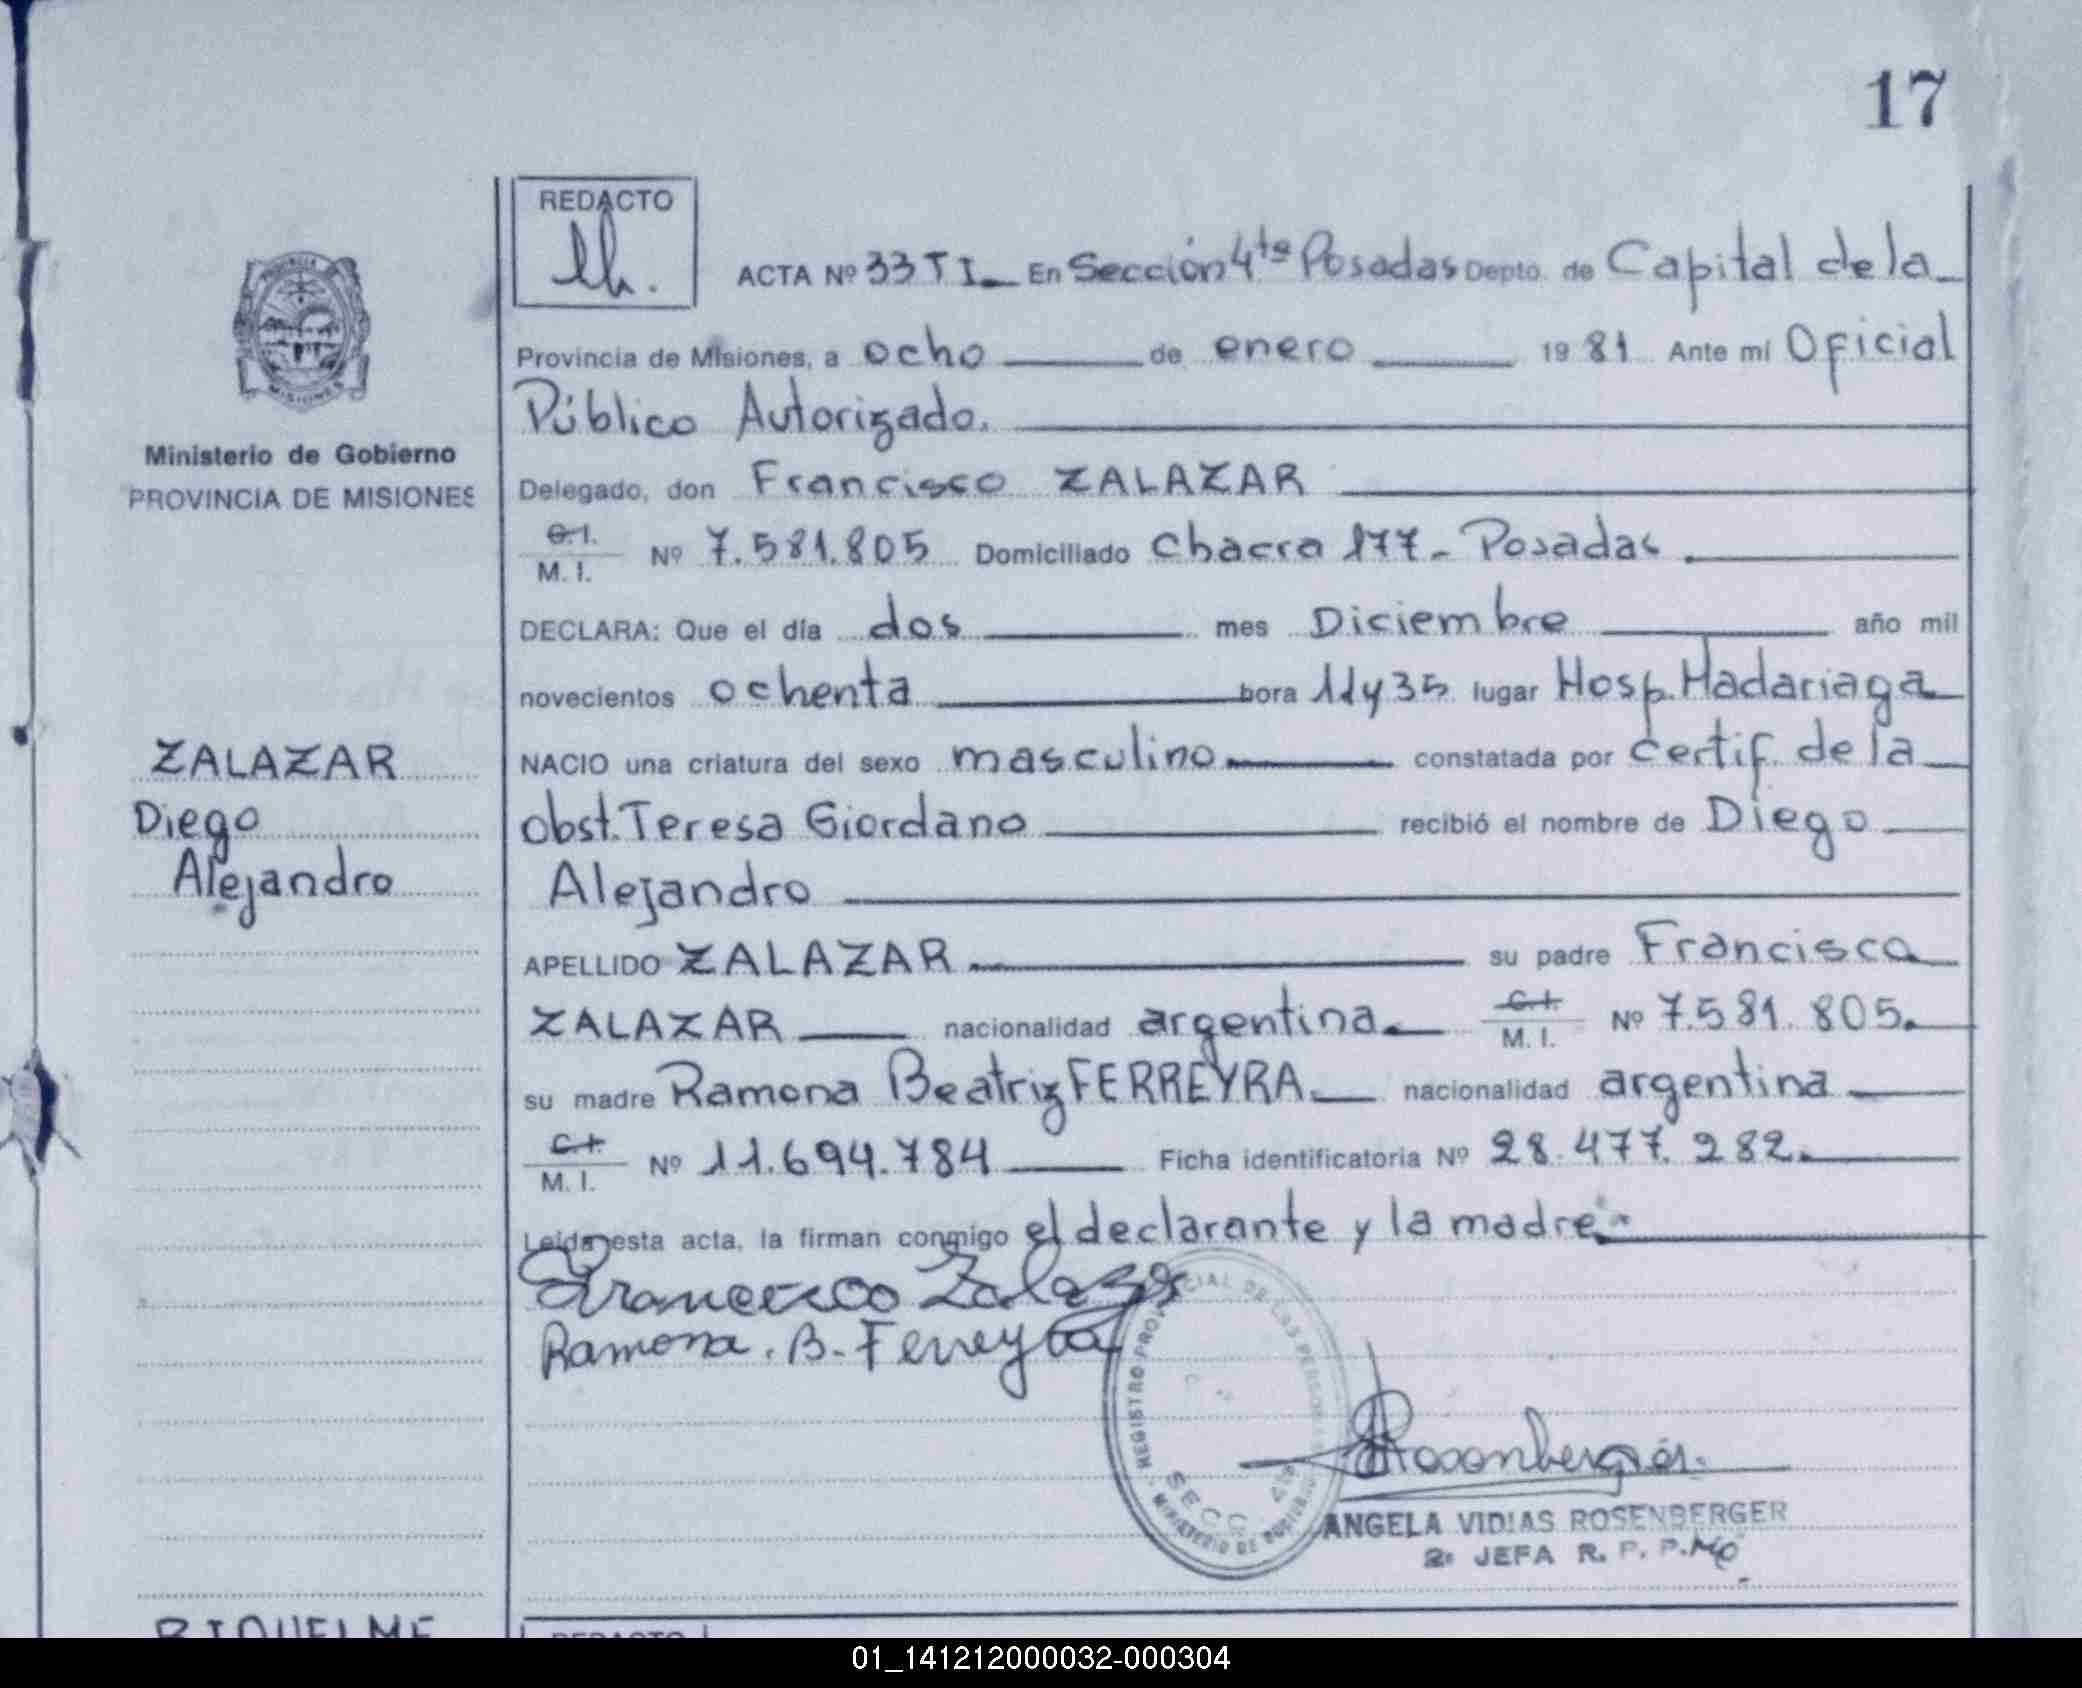 17
REDACTO
ACTA Nº 33 T I En Sección 4ta Posadas Depto. de Capital de la
Provincia de Misiones, a ocho de enero 1981 Ante mí Oficial
Público Autorizado.
Ministerio de Gobierno
PROVINCIA DE MISIONES
Delegado, don Francisco ZALAZAR
C.I.
M. I. Nº 7.581.805 Domiciliado Chacra 177 - Posadas.
DECLARA: Que el día dos mes Diciembre año mil
novecientos ochenta hora 11 y 35 lugar Hosp. Madariaga
ZALAZAR
Diego
Alejandro
NACIO una criatura del sexo masculino constatada por certif. de la
obst. Teresa Giordano recibió el nombre de Diego
Alejandro
APELLIDO ZALAZAR su padre Francisco
ZALAZAR nacionalidad argentina. C.I. M. I. Nº 7.581.805.
su madre Ramona Beatriz FERREYRA nacionalidad argentina
C.I.
M. I. Nº 11.694.784 Ficha identificatoria Nº 28.477.282.
Leída esta acta, la firman conmigo el declarante y la madre.
Francisco Zalazar
Ramona. B. Ferreyra
REGISTRO PROVINCIAL DE LAS PERSONAS
SECC. 4ta
MINISTERIO DE GOBIERNO
ANGELA VIDIAS ROSENBERGER
2º JEFA R. P. P.
RIQUELME
REDACTO
01_141212000032-000304